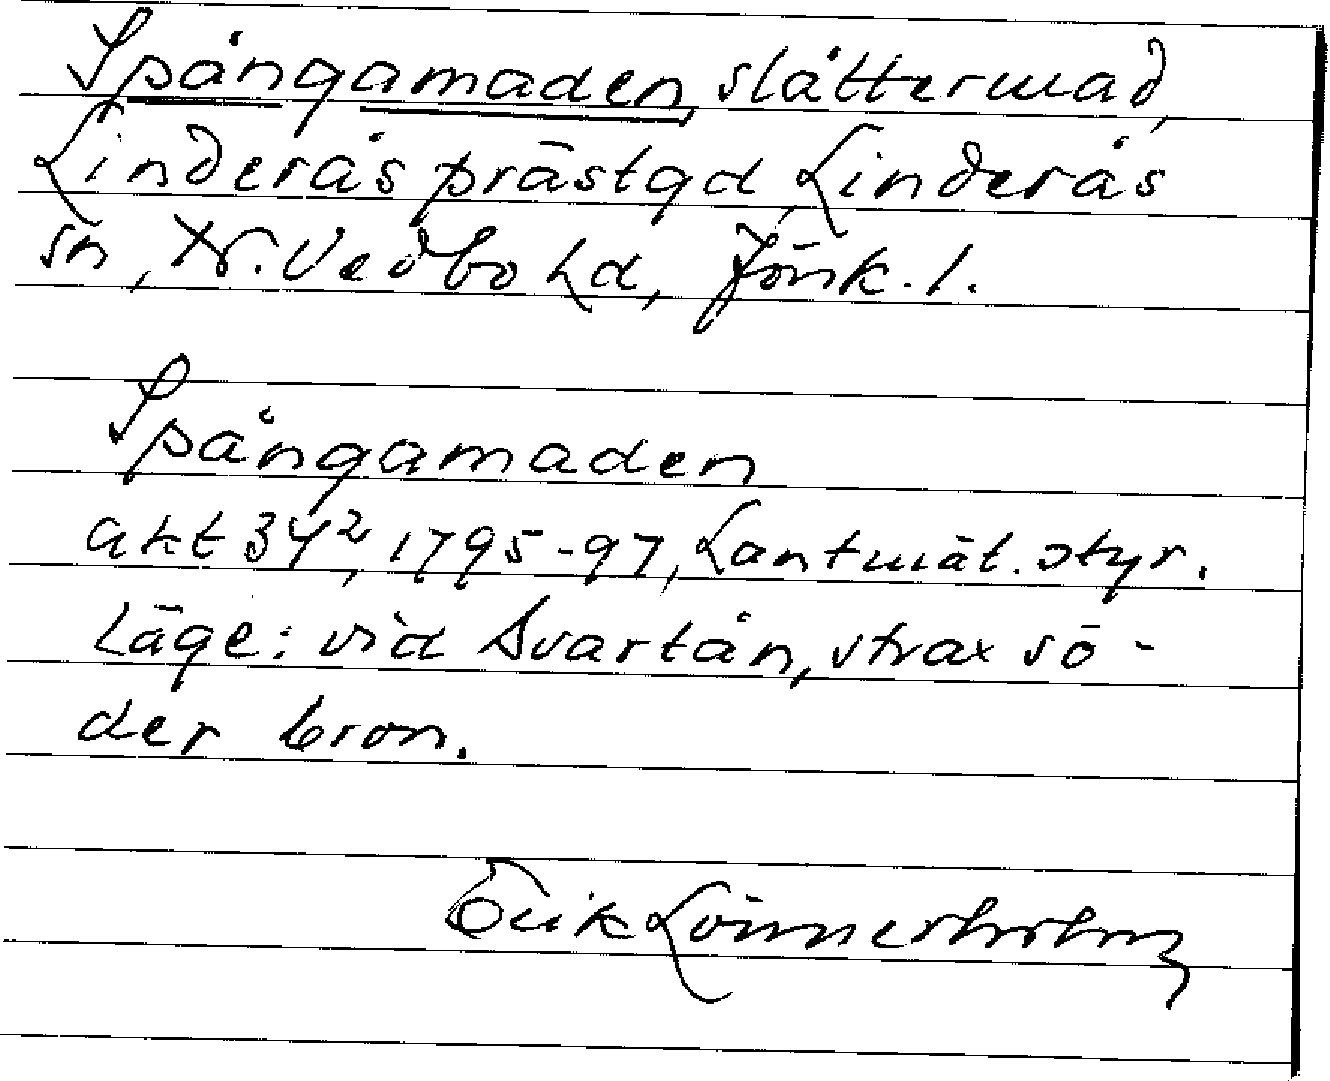 Spångamaden slåttermad,
Linderås prästgd, Linderås
sn, N. Vedbo hd, Jönk. l.
Spångamaden
akt 34², 1795-97, Lantmät. styr.
Läge: vid Svartån, strax sö-
der bron.
Erik Lönnerholm